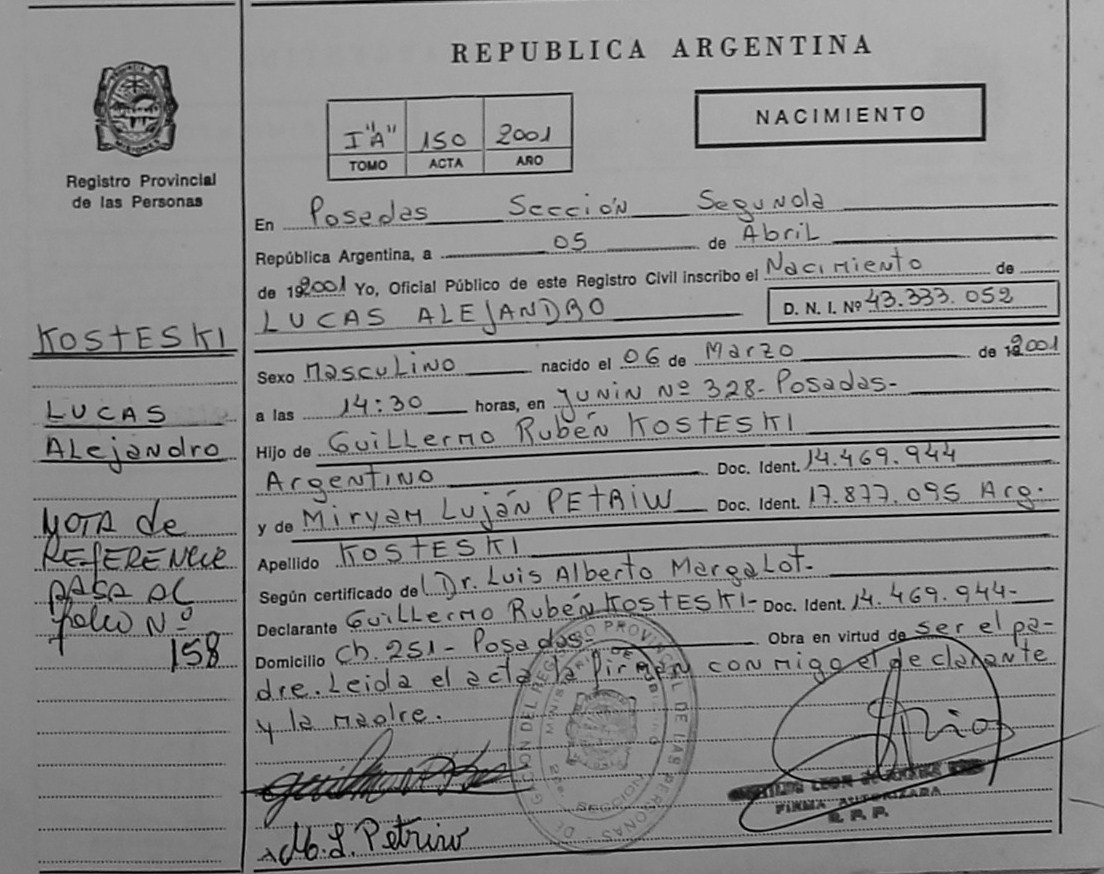 REPUBLICA ARGENTINA
I "A" 150 2001
TOMO ACTA AÑO
NACIMIENTO
PROVINCIA
MISIONES
Registro Provincial
de las Personas
KOSTESKI
LUCAS
ALejandro
NOTA de
REFERENCIA
PASA AL
folio Nº
158
En Posadas Sección Segunda
República Argentina, a 05 de Abril
de 192001 Yo, Oficial Público de este Registro Civil inscribo el Nacimiento de
LUCAS ALEJANDRO D. N. I. Nº 43.333.052
Sexo Masculino nacido el 06 de Marzo de 192001
a las 14:30 horas, en Junin Nº 328- Posadas-
Hijo de Guillermo Rubén KOSTESKI
Argentino Doc. Ident. 14.469.944
y de Miryam Luján PETRIW Doc. Ident. 17.877.095 Arg.
Apellido KOSTESKI
Según certificado de Dr. Luis Alberto Margalot.
Declarante Guillermo Rubén KOSTESKI- Doc. Ident. 14.469.944-
Domicilio Ch. 251- Posadas- Obra en virtud de ser el pa-
dre. Leida el acta la firman conmigo el declarante
y la madre.
DEL REGISTRO PROVINCIAL DE LAS PERSONAS
M. L. Petriw
FIRMA AUTORIZADA
R. P. P.